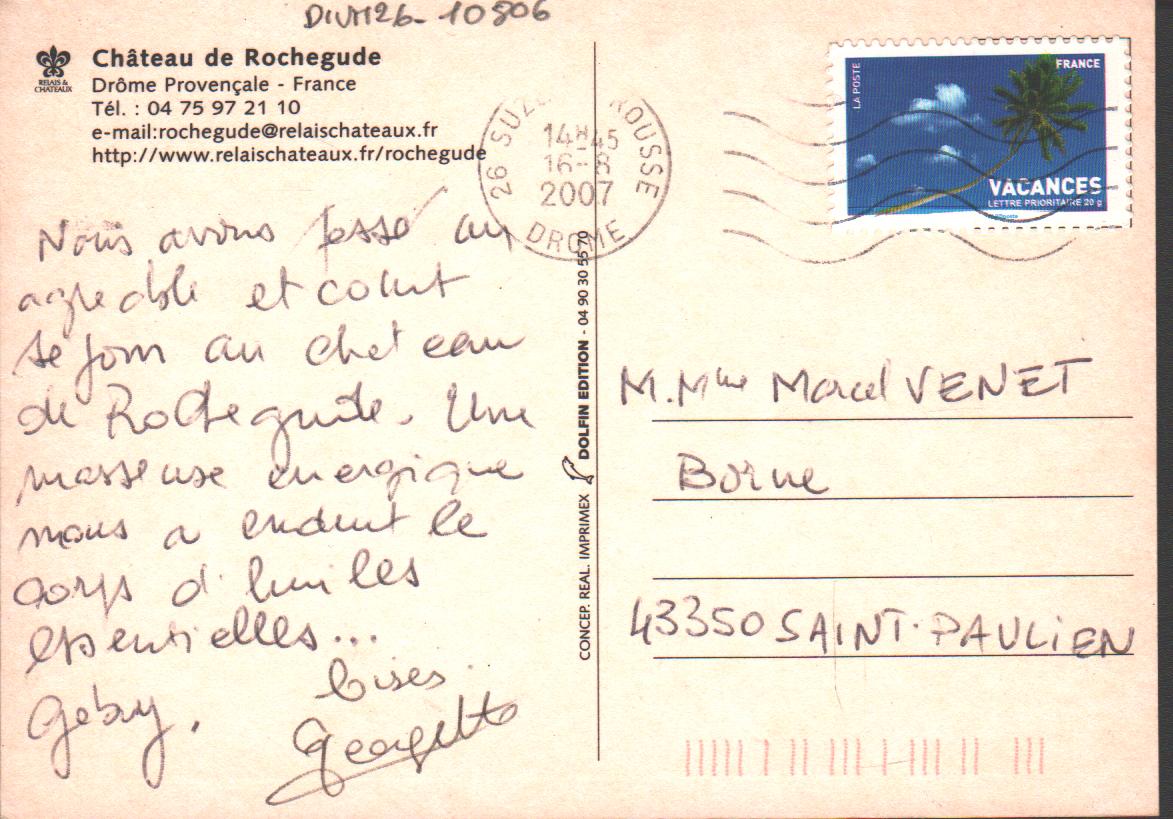 DIVN26-10806
RELAIS &
CHATEAUX
Château de Rochegude
Drôme Provençale - France
Tél. : 04 75 97 21 10
e-mail:rochegude@relaischateaux.fr
http://www.relaischateaux.fr/rochegude
Nous avons passé un
agréable et court
séjour au chateau
de Rochegude. Une
masseuse energique
nous a enduit le
corps d'huiles
essentielles...
bises
Gaby.
Georgette
CONCEP. REAL. IMPRIMEX DOLFIN EDITION - 04 90 30 55 70
26 SUZE ROUSSE
14H45
16-8
2007
DROME
LA POSTE
FRANCE
VACANCES
LETTRE PRIORITAIRE 20 g
M. Mme Marcel VENET
Borne
43350 SAINT-PAULIEN